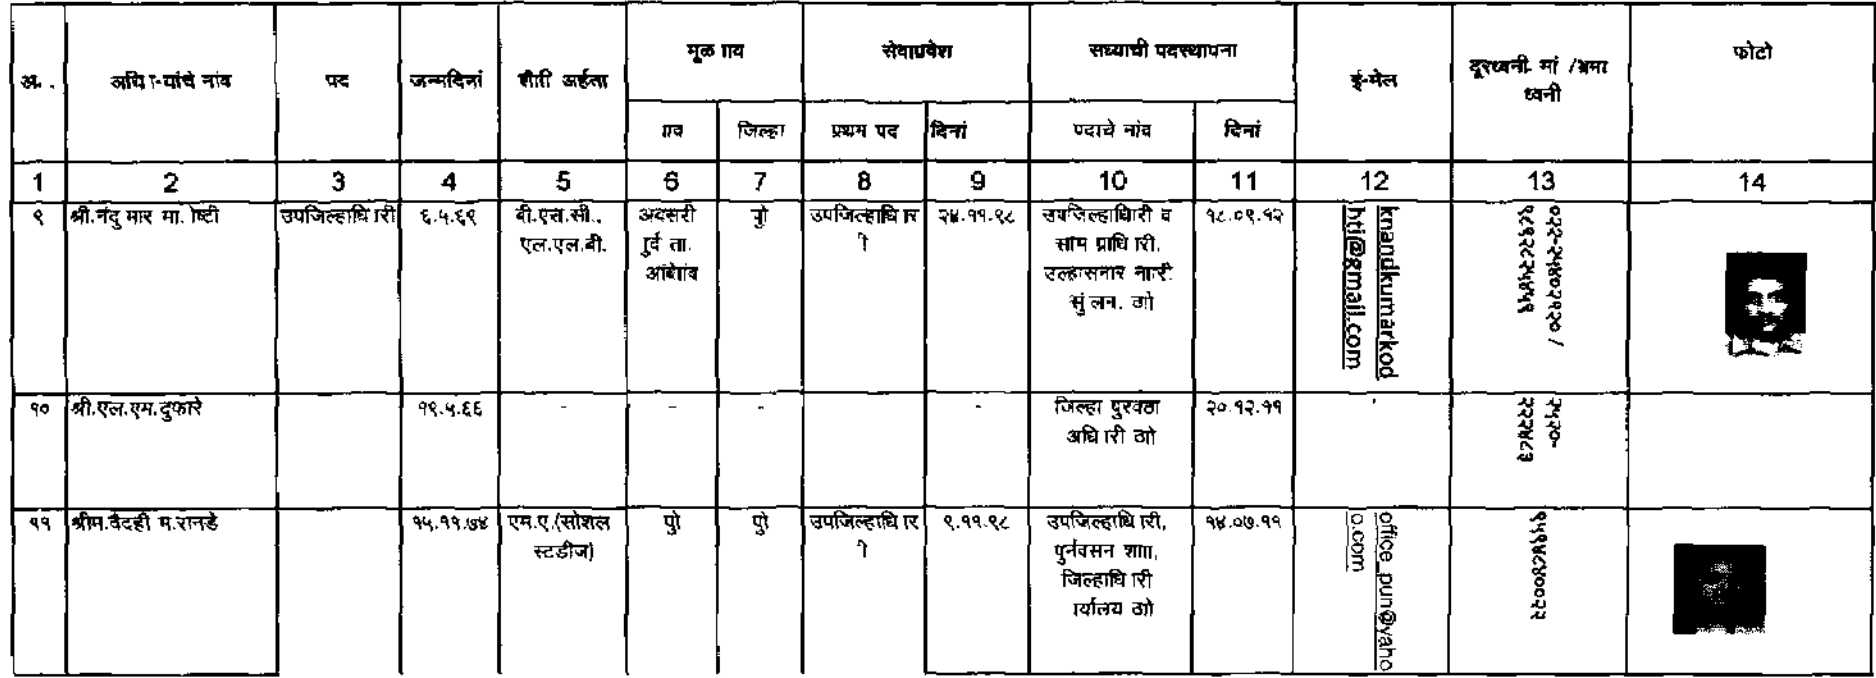 अ. . अधि ा-यांचे नांव पद जन्मदिनां शैाि अर्हता मूळ ााव सेवाप्रवेश सध्याची पदस्थापना ई-मेल दूरध्वनी मां /भ्रमा ध्वनी फोटो
ााव जिल्हा प्रथम पद दिनां पदाचे नांव दिनां
1 2 3 4 5 6 7 8 9 10 11 12 13 14
९ श्री.नंदु मार मा. ोष्टी उपजिल्हाधि ारी ६.५.६९ बी.एस.सी.,
एल.एल.बी.
अवसरी
ुर्द ता.
आंबेाांव
पुो
उपजिल्हाधि ार
ी
२४.११.९८
उपजिल्हाधिारी व
साम प्राधि ारी,
उल्हासनार नाारी
सं ुलन. ठाो
१८.०९.१२
knandkumarkod
hti@gmail.com
०२२-२५४०२१२० /
१० श्री.एल.एम.दुफारे १९.५.६६ - - - -
जिल्हा पुरवठा
अधि ारी ठाो
२०.१२.११
२५२०-
२२२४८३
११ श्रीम.वैदही म.रानडे १५.११.७४ एम.ए.(सोशल
स्टडीज)
पुो पुो
उपजिल्हाधि ार
ी
९.११.९८
उपजिल्हाधि ारी,
पुर्नवसन शााा,
जिल्हाधि ारी
ार्यालय ठाो
१४.०७.११
office_pun@yaho
o.com
९५९४८४००२२